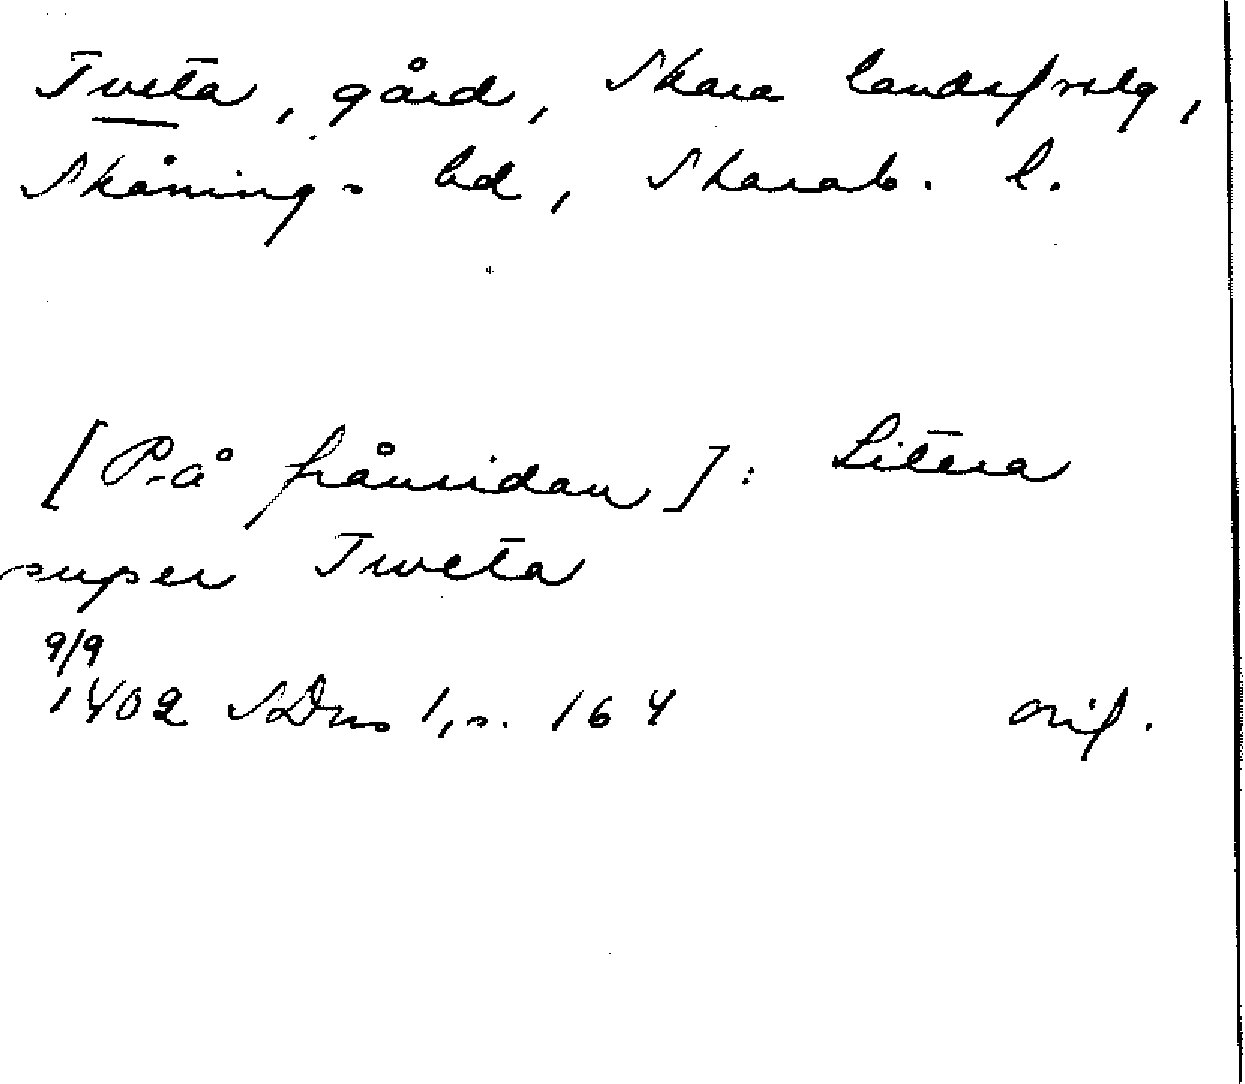 Tveta, gård, Skara landsförslg,
Skånings hd, Skarab. l.
[På frånsidan]: Litera
super Tweta
9/9
1402 SDns 1, s. 164 orig.